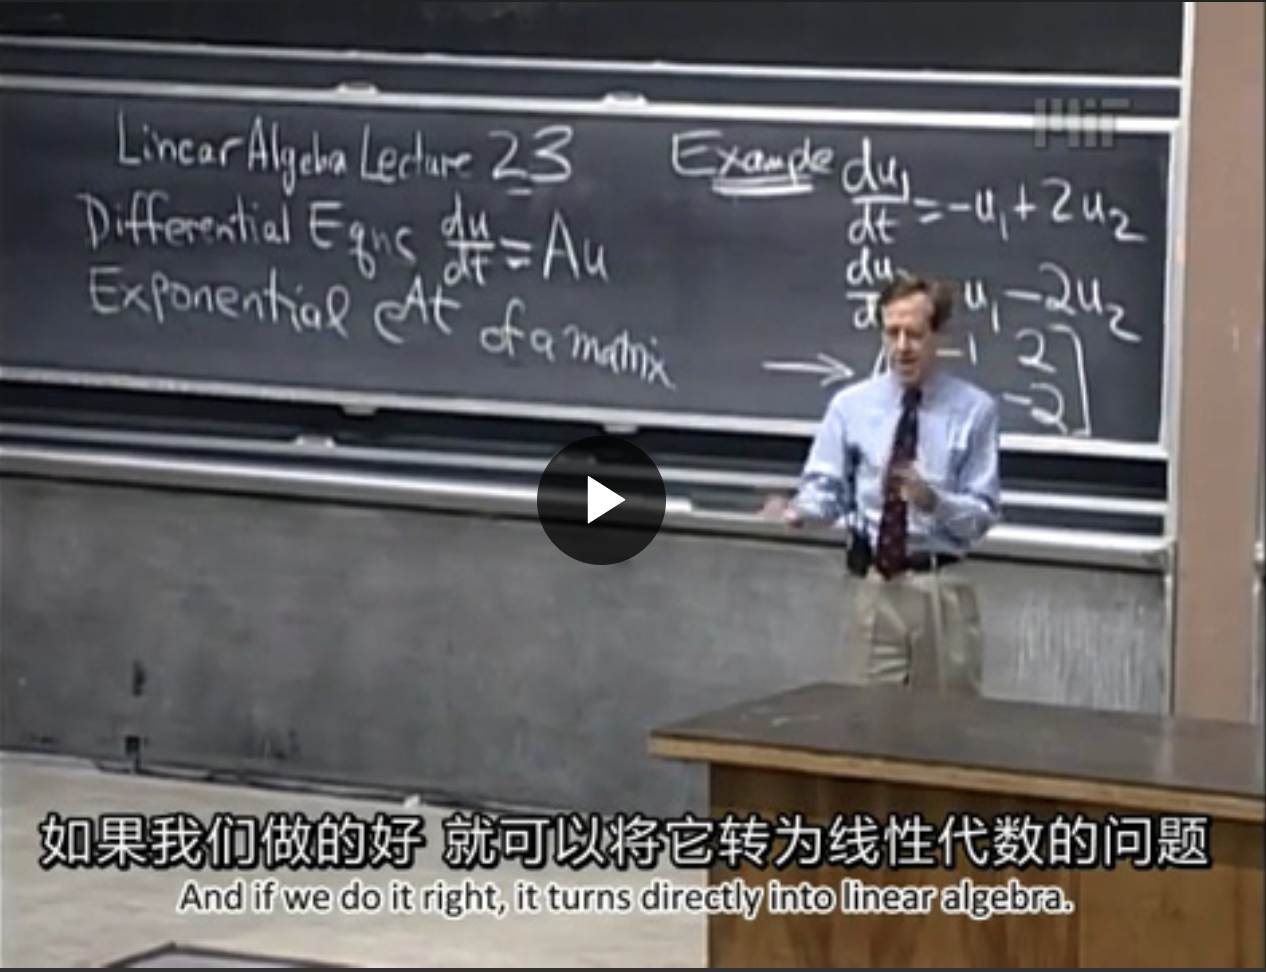 MIT
Linear Algebra Lecture 23
Differential Eqns du/dt = Au
Exponential eAt of a matrix
Example du1/dt = -u1 + 2u2
u1 - 2u2
-1 2
-2
如果我们做的好 就可以将它转为线性代数的问题
And if we do it right, it turns directly into linear algebra.